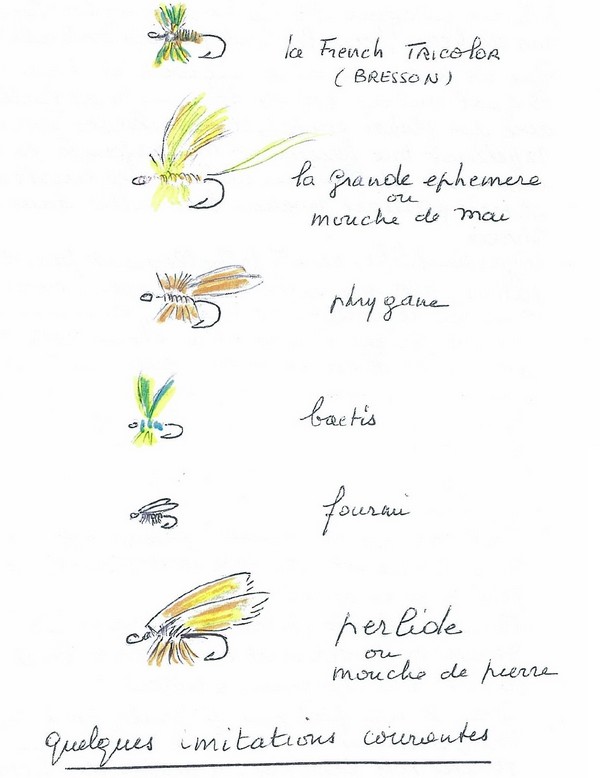 la French TRICOLOR
(BRESSON)
la grande ephemere
ou
mouche de mai
phrygane
baetis
fourmi
perlide
ou
mouche de pierre
quelques imitations courantes